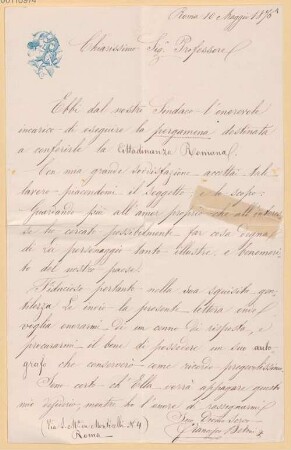 Roma 10 Maggio 1876
Chiarissimo Sig. Professore
Ebbi dal nostro Sindaco l'onorevole
incarico di eseguire la pergamena destinata
a conferirle la Cittadinanza Romana.
Con una grande sodisfazione accettai tale
lavoro piacendomi il soggetto e lo scopo.
Guardando più all'amor proprio che all'interesse
ho cercato possibilmente far cosa degna
di un personaggio tanto illustre e benemerito
del nostro paese.
Fiducioso pertanto nella sua squisita gentilezza
Le invio la presente lettera onde
voglia onorarmi di un cenno di risposta, e
procurarmi il bene di possedere un suo autografo
che conserverò come ricordo pregevolissimo.
Son certo ch'Ella vorrà appagare questo
mio desiderio, mentre ho l'onore di rassegnarmi
Suo Devmo Servo
Francesco
(Via S. Ma in Monticelli N. 4)
Roma